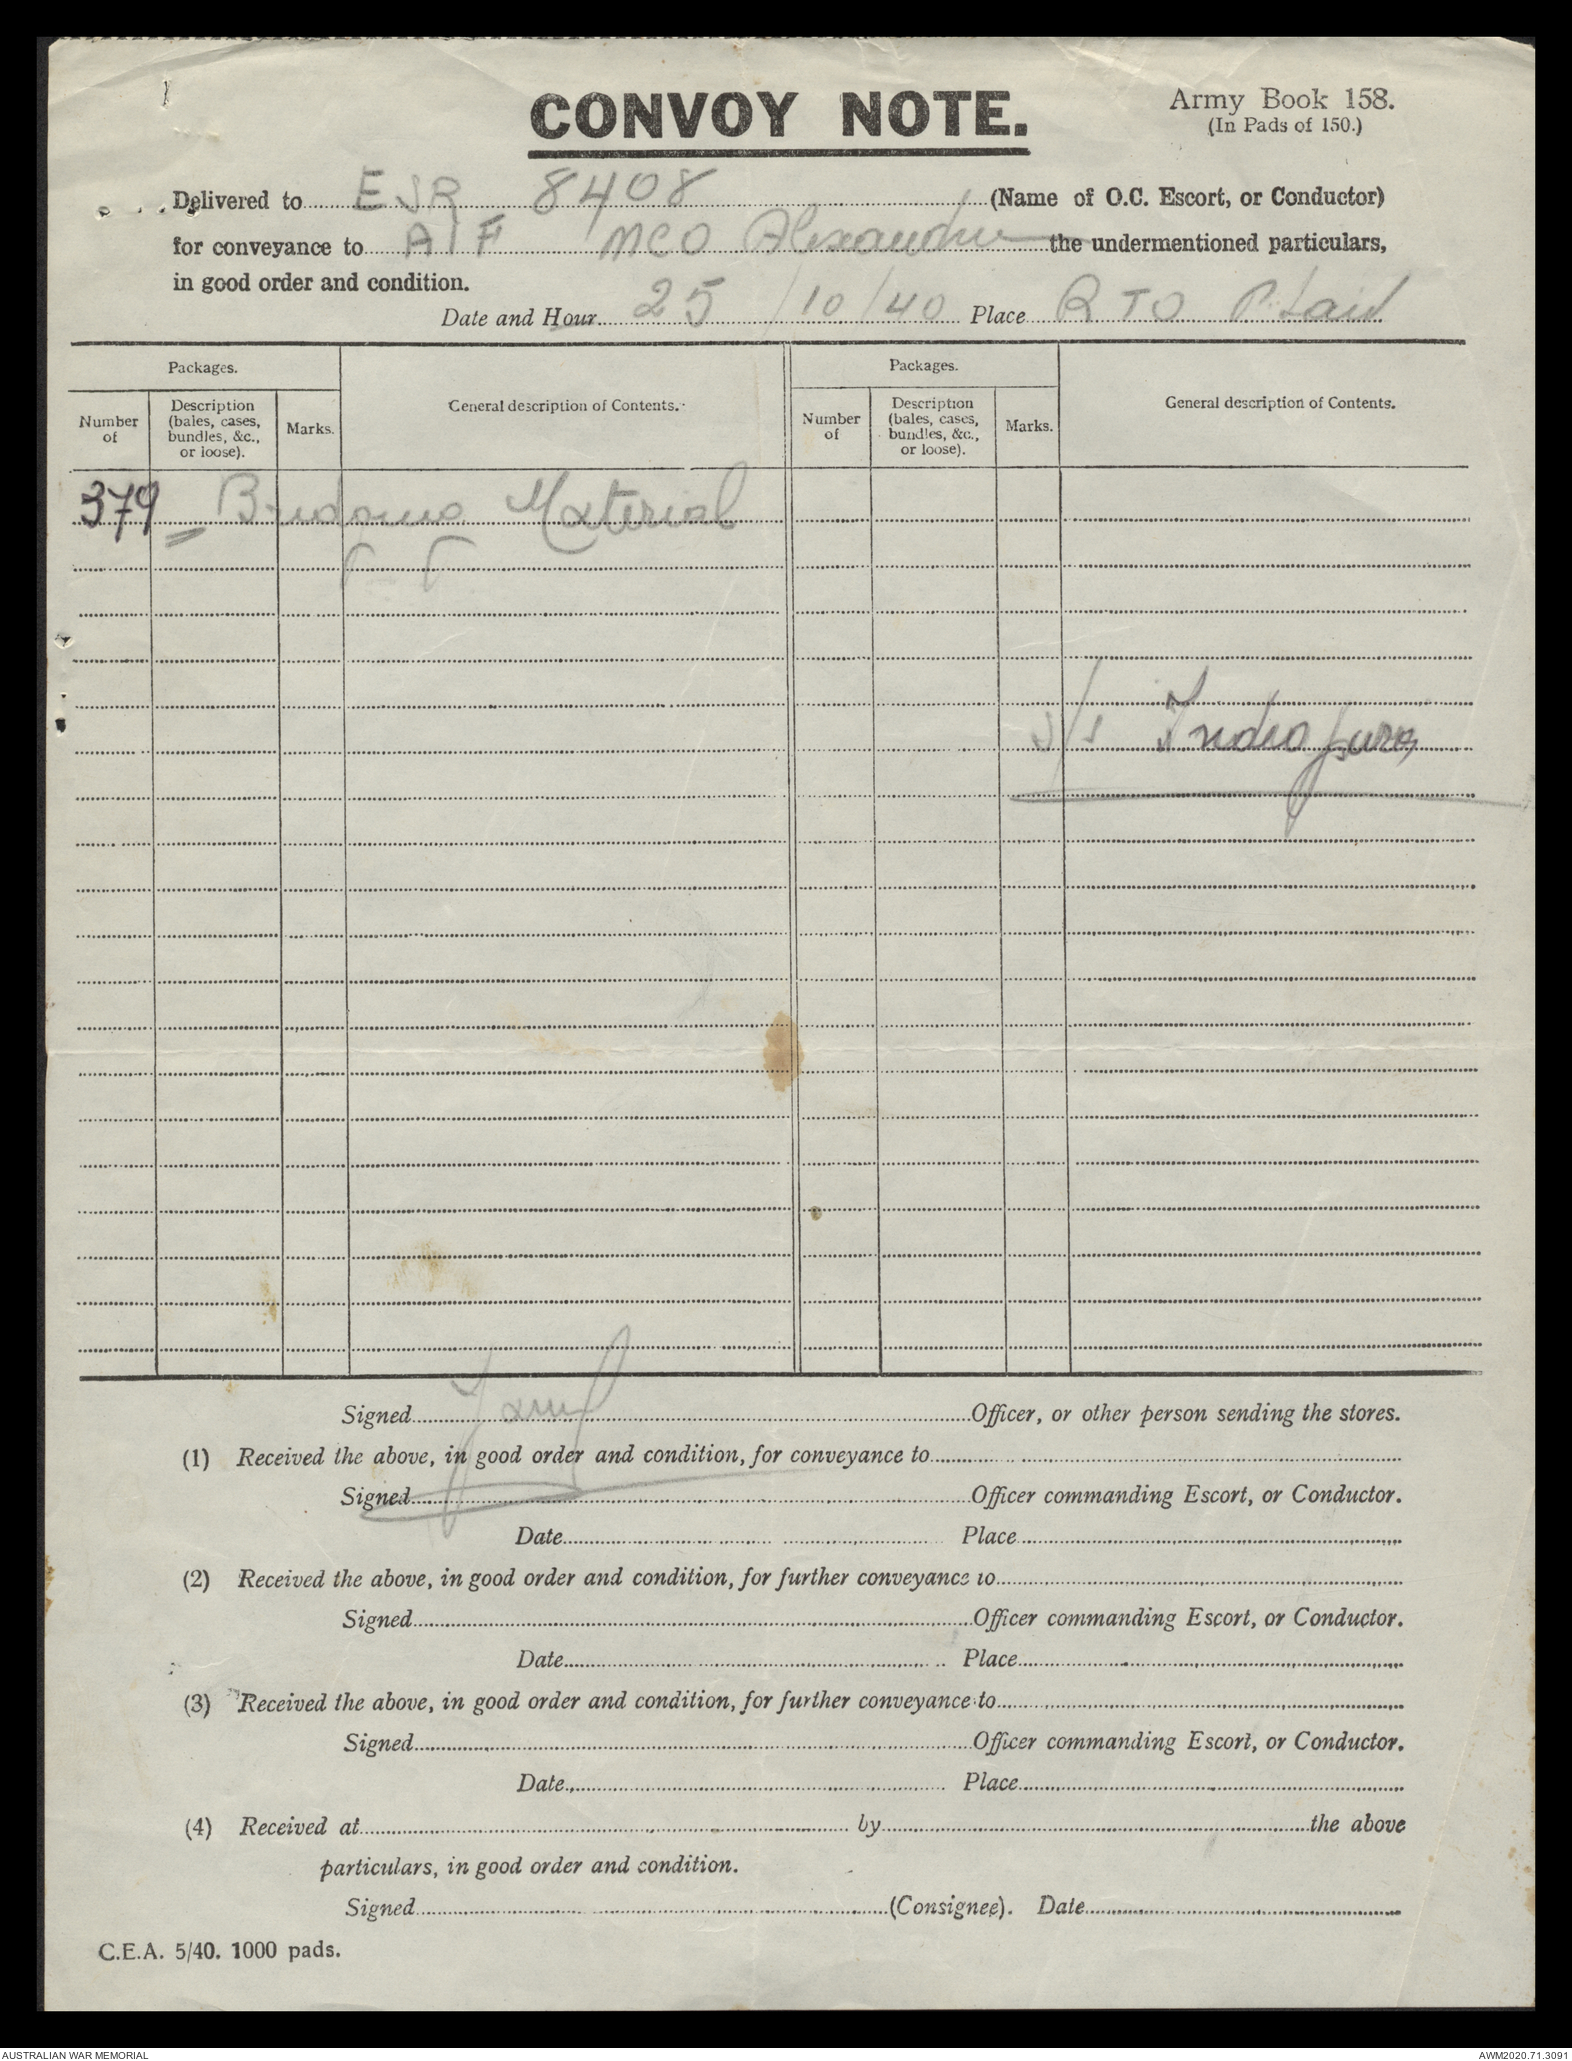 CONVOY NOTE.
Army Book 158.
(In Pads of 150.)
Delivered to ESR 8408 (Name of O.C. Escort, or Conductor)
for conveyance to AIF MCO Alexandria the undermentioned particulars,
in good order and condition.
Date and Hour 25/10/40 Place RTO P. Said
Packages.
Number of
Description (bales, cases, bundles, &c., or loose).
Marks.
General description of Contents.
Packages.
Number of
Description (bales, cases, bundles, &c., or loose).
Marks.
General description of Contents.
379 Material
s/s Indrapura
Signed Officer, or other person sending the stores.
(1) Received the above, in good order and condition, for conveyance to
Signed Officer commanding Escort, or Conductor.
Date Place
(2) Received the above, in good order and condition, for further conveyance to
Signed Officer commanding Escort, or Conductor.
Date Place
(3) Received the above, in good order and condition, for further conveyance to
Signed Officer commanding Escort, or Conductor.
Date Place
(4) Received at by the above
particulars, in good order and condition.
Signed (Consignee). Date
C.E.A. 5/40. 1000 pads.
AUSTRALIAN WAR MEMORIAL
AWM2020.71.3091